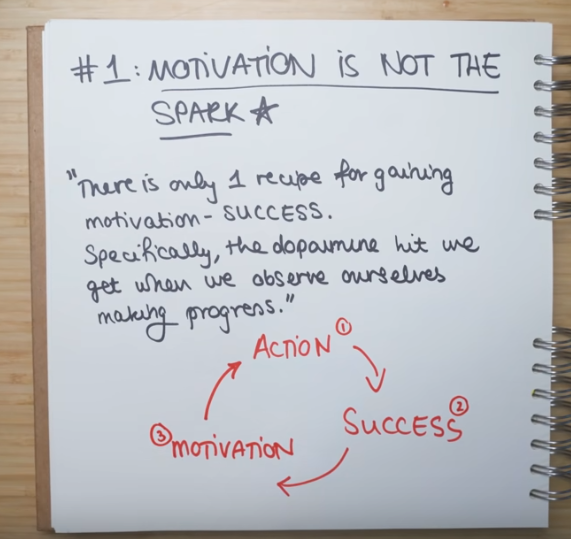 #1: MOTIVATION IS NOT THE
SPARK ☆
"There is only 1 recipe for gaining
motivation - SUCCESS.
Specifically, the dopamine hit we
get when we observe ourselves
making progress."
ACTION ①
SUCCESS ②
③ MOTIVATION